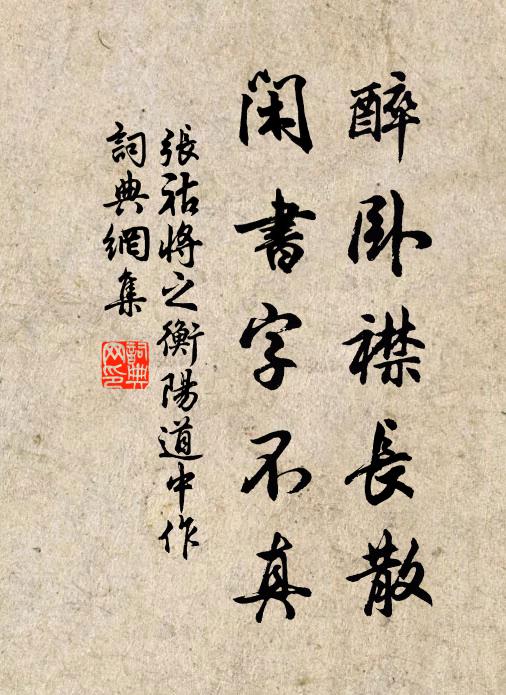 醉卧襟長散
閑書字不真
張祜將之衡陽道中作
詞典網集
詞典網印